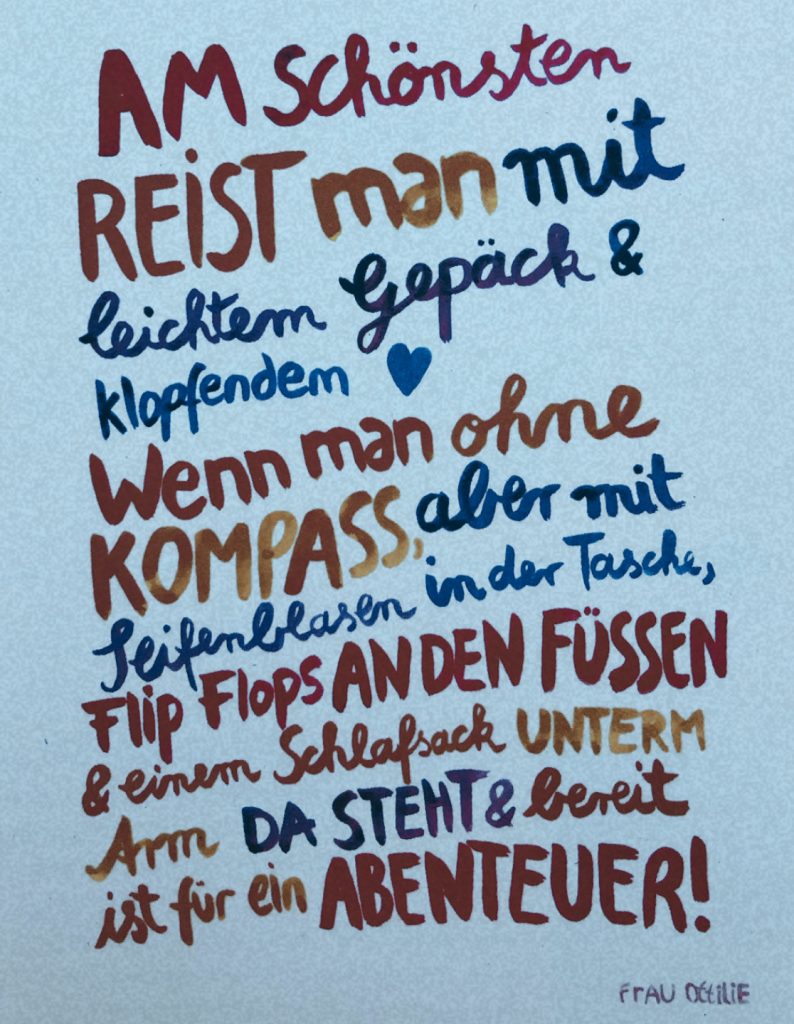 AM Schönsten
REIST man mit
leichtem Gepäck &
klopfendem ♥
Wenn man ohne
KOMPASS, aber mit
Seifenblasen in der Tasche,
Flip Flops AN DEN FÜSSEN
& einem Schlafsack UNTERM
Arm DA STEHT & bereit
ist für ein ABENTEUER!
FRAU OttiliE